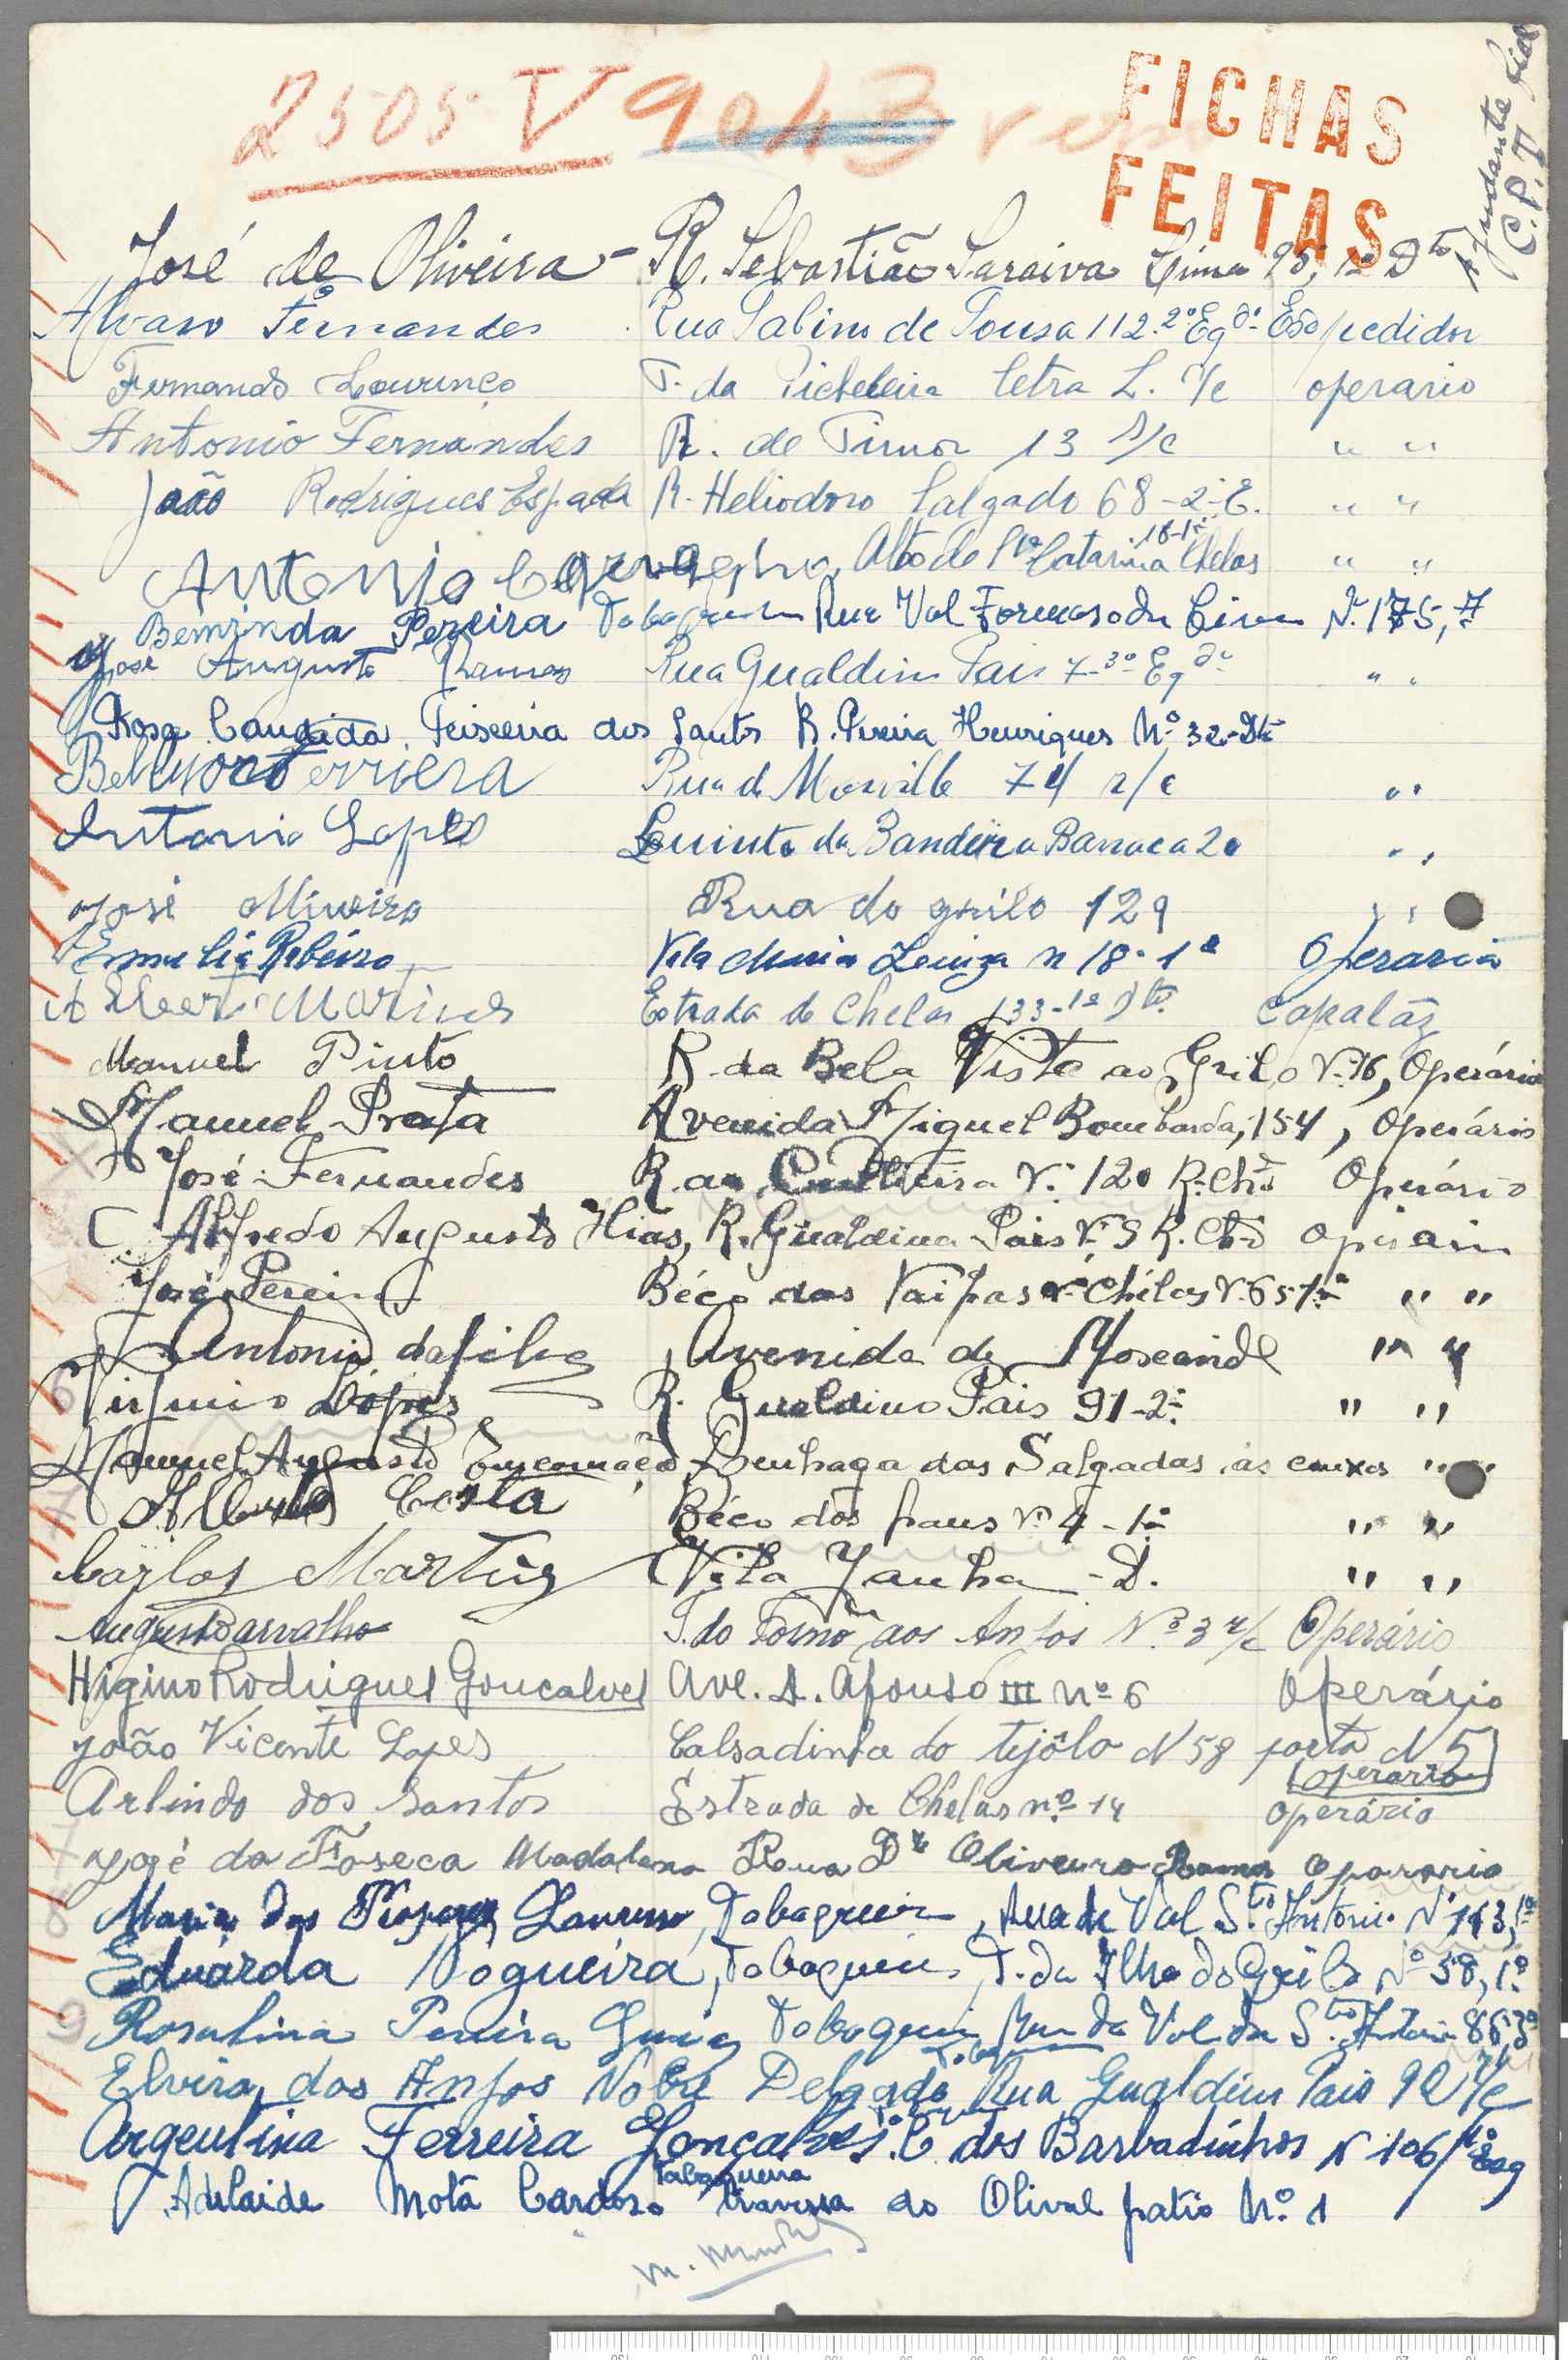 2505 V 9043
FICHAS
FEITAS
Ajudante
C.P.T
José de Oliveira - R. Sebastião Saraiva Lima 95, 1º Dto
Alvaro Fernandes Rua Sabino de Sousa 112-2º Eqdo Expedidor
Fernando Lourenço T. da Picheleira letra L. r/c operario
Antonio Fernandes R. de Timor 13 r/c " "
João Rodrigues Espada R. Heliodoro Salgado 68-2º E. " "
Antonio Alto de Sta Catarina 18-1º Chelas " "
Beminda Pereira Tabaqueira Rua Val Formoso de Cima Nº 175, 7
José Augusto Ramos Rua Gualdim Pais 7-3º Eqdo " "
Rosa Candida Teixeira dos Santos R. Pereira Henriques Nº 32-Dto
Belmiro Ferriera Rua de Marvilla 74 r/c "
Antonio Lopes Quinta da Bandeira Barraca 20 "
José Oliveira Rua do grilo 129 "
Emilia Ribeiro Vila Luiza n 18-1º Operaria
Alberto Martins Estrada de Chelas 133-1º Dto. Capataz
Manuel Pinto R. da Bela Vista ao Grilo Nº 16, Operário
Manuel Prata Avenida Miguel Bombarda, 154, Operário
José Fernandes R. da Nº 120 R. Chão Operário
Alfredo Augusto R. Gualdim Pais Nº 9 R. Chão Operario
José Pereira Béco das Taipas Chelas Nº 65 1º " "
Antonio da Silva Avenida de Moscavide " "
Lopes R. Gualdino Pais 91-2º " "
Manuel Augusto Encarnação Azinhaga das Salgadas ás " "
Alberto Costa Béco dos Nº 4-1º " "
Carlos Martins Vila Janha - D. " "
Augusto Carvalho T. do Forno aos Anjos Nº 3 r/c Operário
Higino Rodrigues Goncalves Ave. D. Afonso III nº 6 Operário
João Vicente Lopes Calsadinha do tejôlo N 58 porta N 5
operario
Arlindo dos Santos Estrada de Chelas nº 14 operário
José da Foseca Madalena Rua Dr Oliveira Ramos Oporario
Maria dos Tabaqueira, Rua de Val Sto Antonio Nº 143, 1º
Eduarda Nogueira, Tabaqueira, T. da Ilha do Grilo Nº 38, 1º
Rosalina Pereira Tabaqueira Rua da Val de Sto Antonio 86 3º
Elvira dos Anjos Nobre Delgado Rua Gualdim Pais 92 r/c
Argentina Ferreira Gonçalves C. dos Barbadinhos N 106 1º Esq
Tabaqueira
Adelaide Mota Cardoso travessa do Olival patio Nº 1